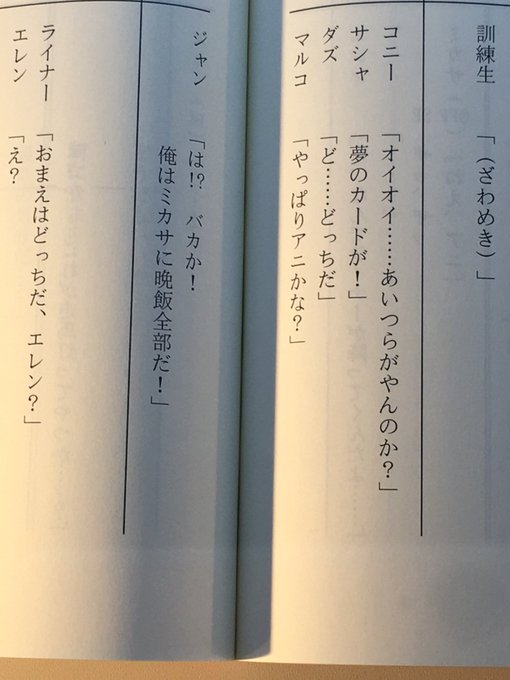 訓練生 「(ざわめき)」
コニー 「オイオイ……あいつらがやんのか?」
サシャ 「夢のカードが!」
ダズ 「ど……どっちだ」
マルコ 「やっぱりアニかな?」
ジャン 「は!? バカか!
俺はミカサに晩飯全部だ!」
ライナー 「おまえはどっちだ、エレン?」
エレン 「え?